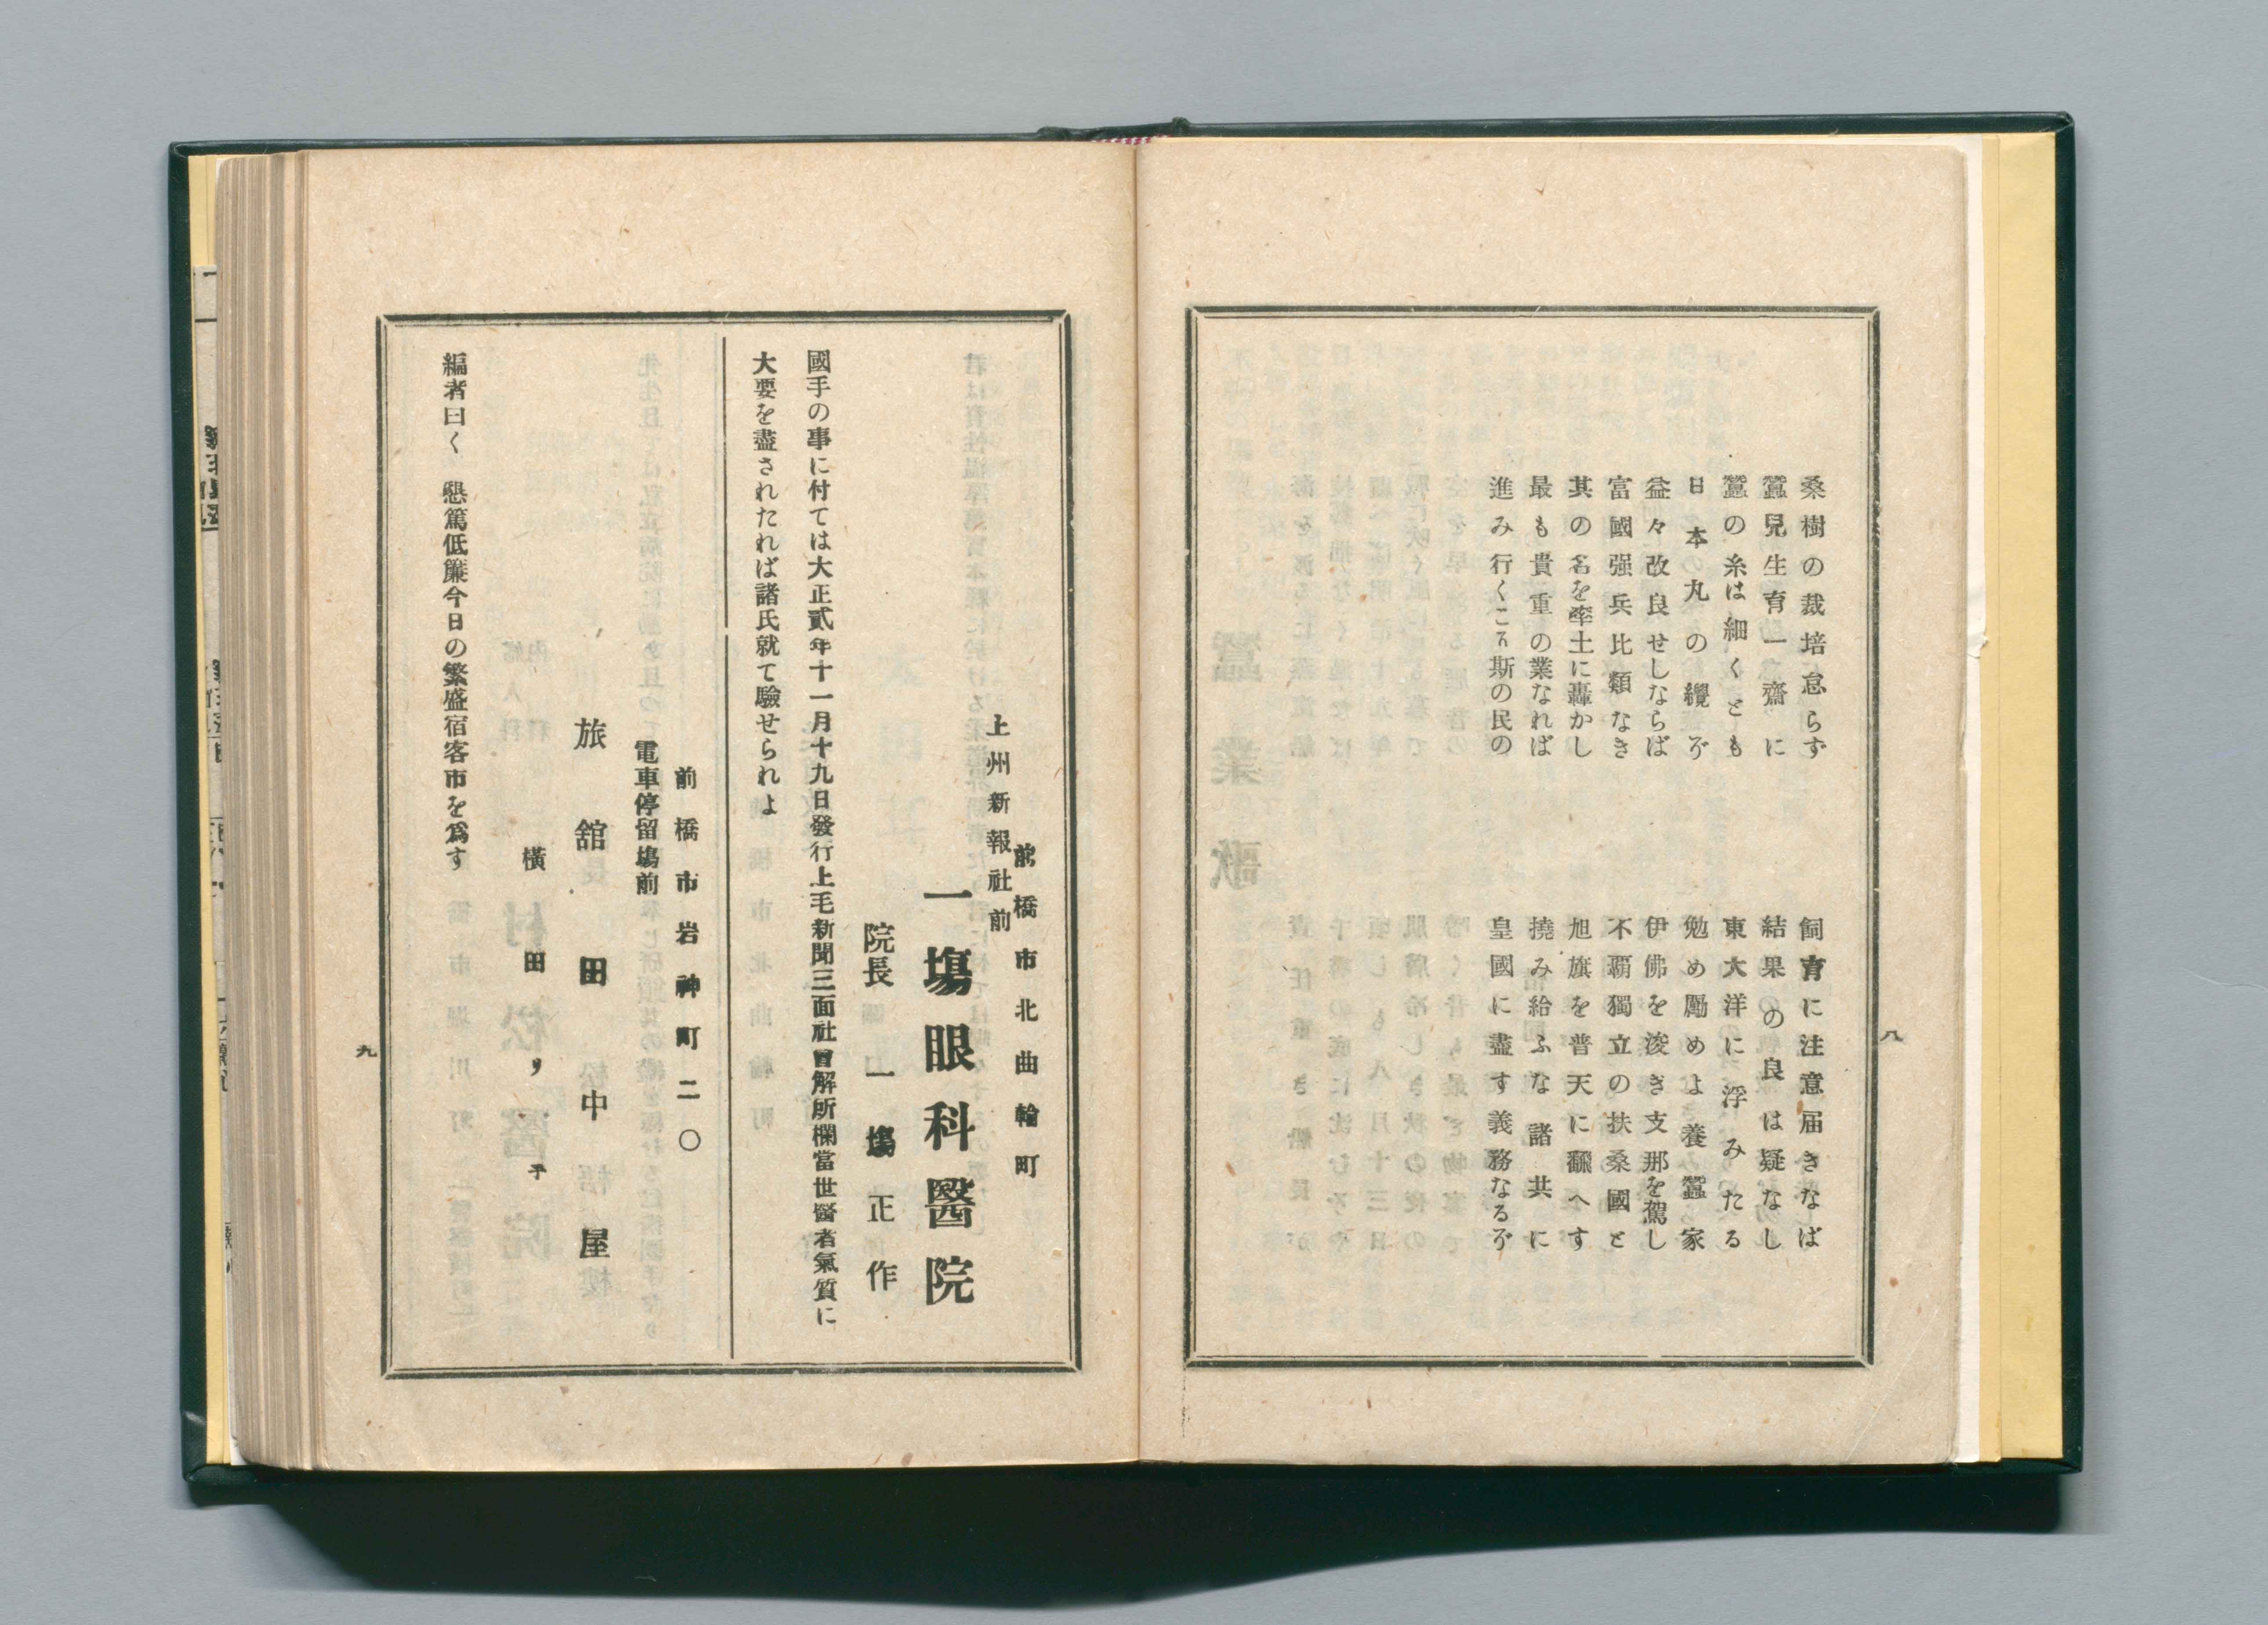 桑樹の栽培怠らず
飼育に注意届きなば
蠶兒生育一齋に
結果の良は疑なし
蠶の糸は細くとも
東大洋に浮みたる
日本丸の纜ぞ
勉め勵めよ養蠶家
益々改良せしならば
伊佛を凌ぎ支那を駕し
富國强兵比類なき
不覇獨立の扶桑國と
其の名を率土に轟かし
旭旗を普天に飜へす
最も貴重の業なれば
撓み給ふな諸共に
進み行くこそ斯の民の
皇國に盡す義務なるぞ
八
前橋市北曲輪町
上州新報社前
一塲眼科醫院
院長 一塲正作
國手の事に付ては大正貳年十一月十九日發行上毛新聞三面社會解所欄當世醫者氣質に
大要を盡されたれば諸氏就て驗せられよ
前橋市岩神町二〇
電車停留塲前
旅舘 田中屋
橫田リ子
編者曰く 懇篤低廉今日の繁盛宿客市を爲す
九